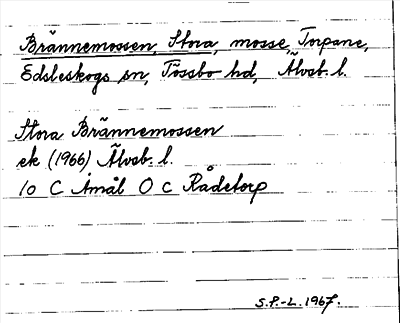 Brännemossen, Stora, mosse, Torpane,
Edsleskogs sn, Tössbo hd, Älvsb. l.
Stora Brännemossen
ek (1966) Älvsb. l.
10 C Åmål O c Rådetorp
S.P.-L. 1967.